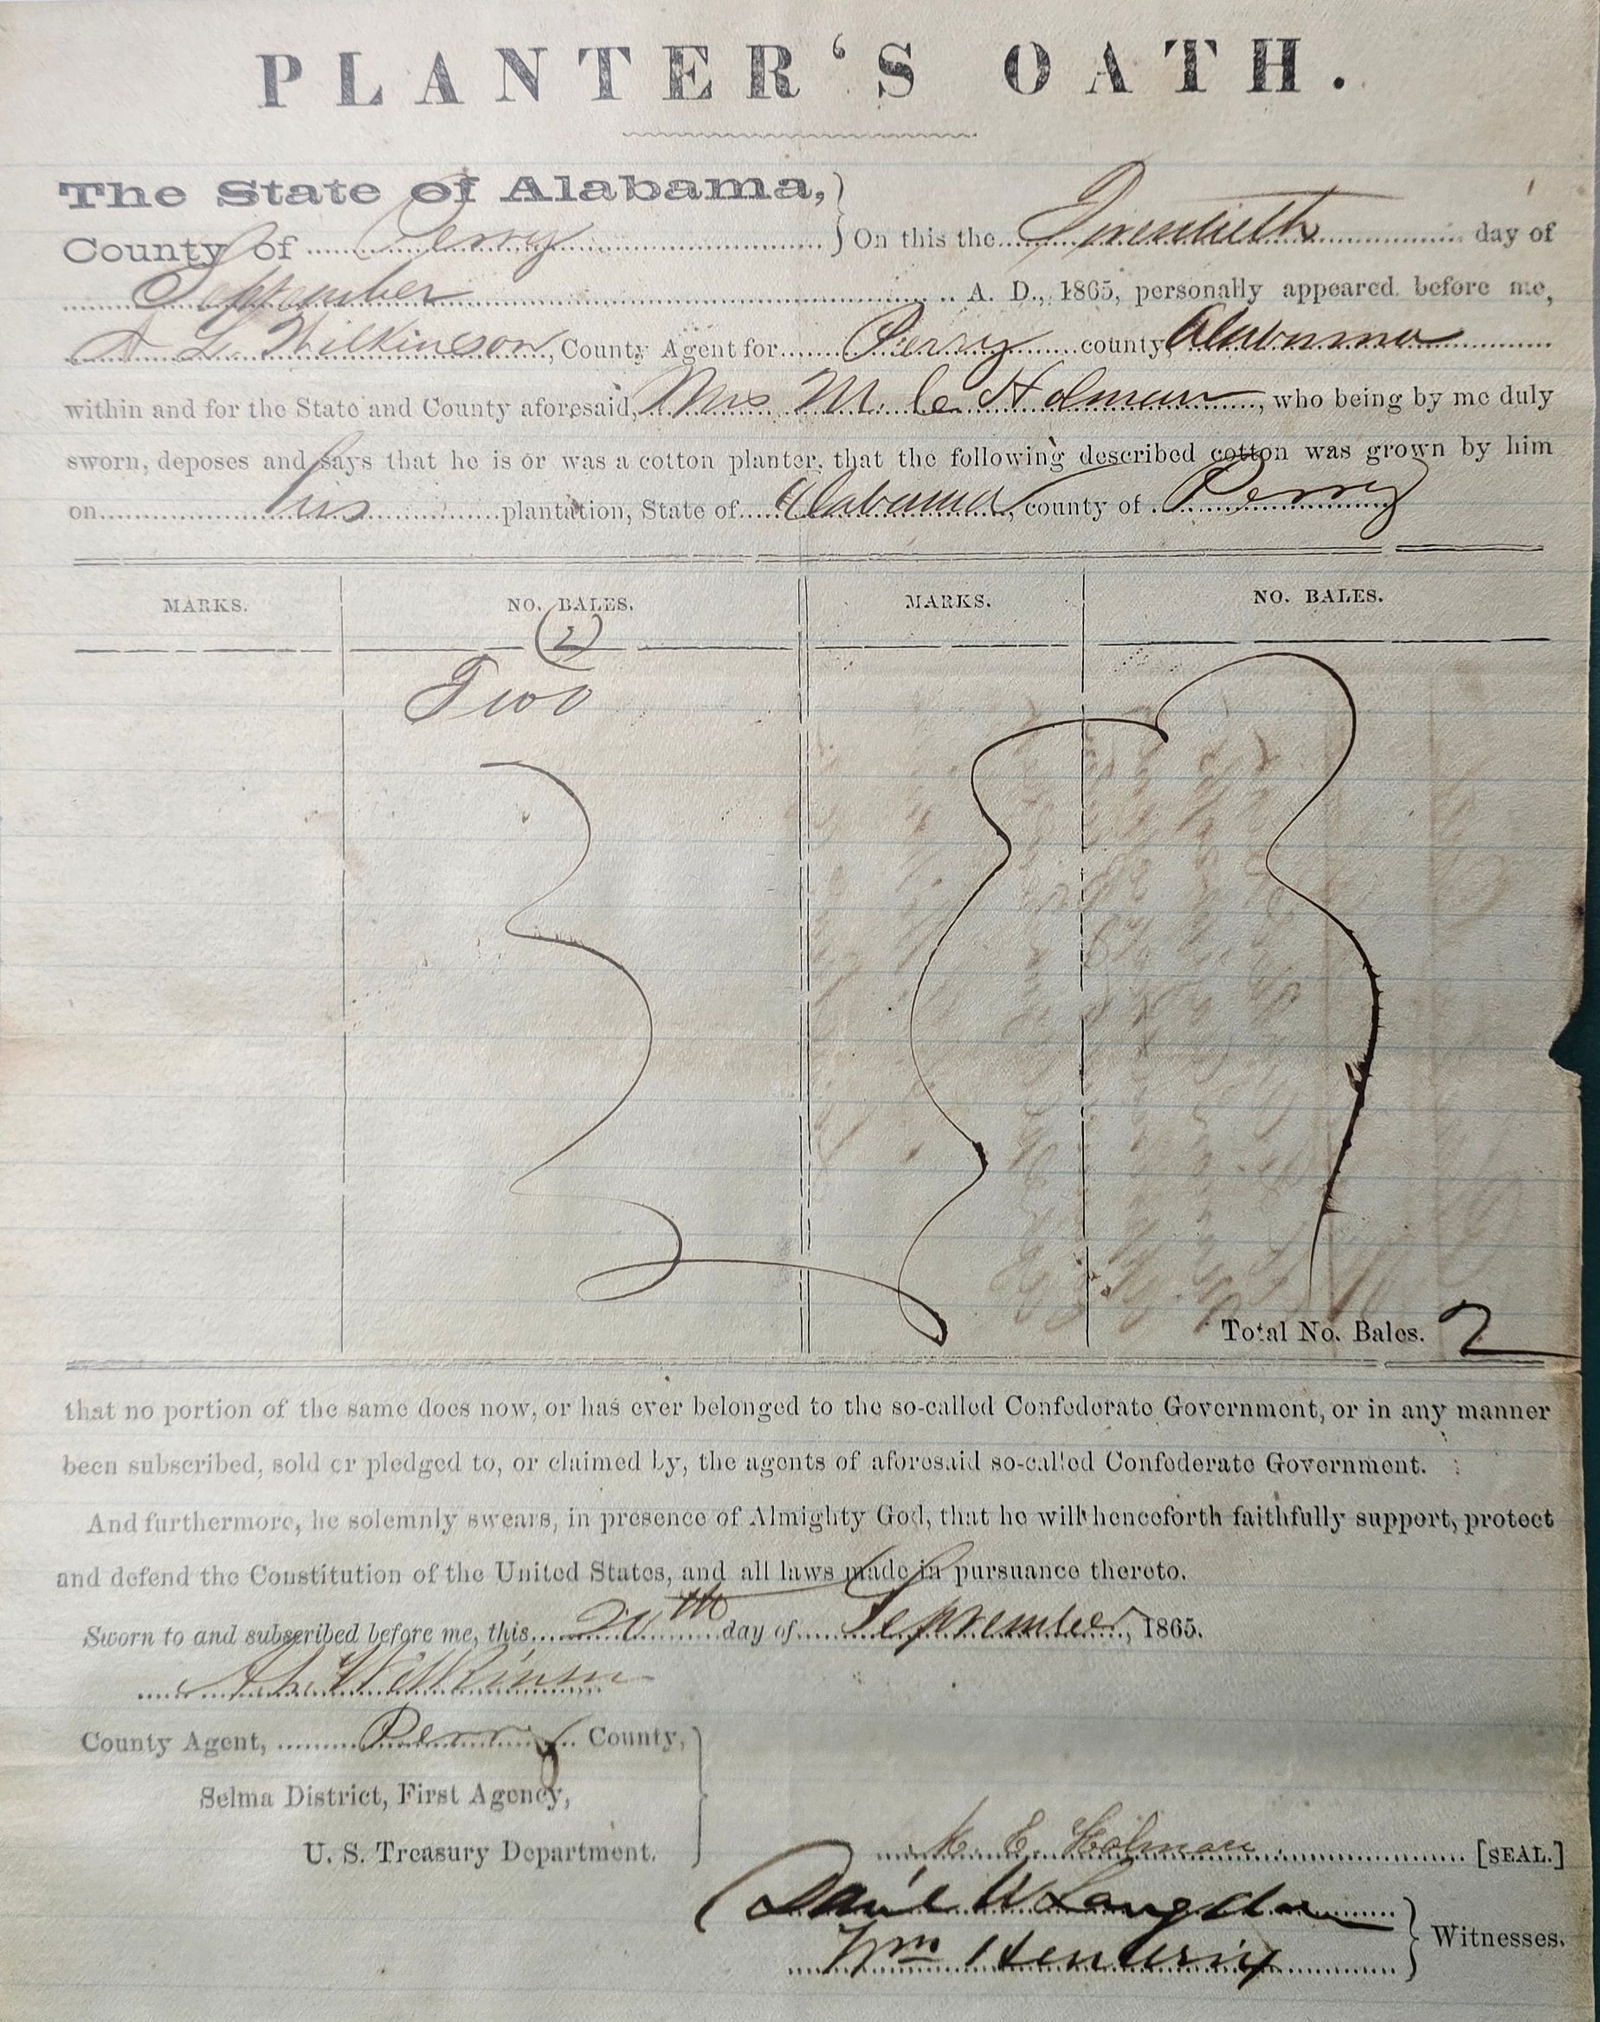 PLANTER'S OATH.
The State of Alabama,
County of Perry } On this the Twentieth day of
September A. D., 1865, personally appeared before me,
A L Wilkinson, County Agent for Perry county, Alabama
within and for the State and County aforesaid, Mrs M. C Holman, who being by me duly
sworn, deposes and says that he is or was a cotton planter, that the following described cotton was grown by him
on his plantation, State of Alabama, county of Perry
MARKS. NO. BALES. MARKS. NO. BALES.
(2)
Two
Total No. Bales. 2
that no portion of the same does now, or has ever belonged to the so-called Confederate Government, or in any manner
been subscribed, sold or pledged to, or claimed by, the agents of aforesaid so-called Confederate Government.
And furthermore, he solemnly swears, in presence of Almighty God, that he will henceforth faithfully support, protect
and defend the Constitution of the United States, and all laws made in pursuance thereto.
Sworn to and subscribed before me, this 20th day of September, 1865.
A L Wilkinson
County Agent, Perry County,
Selma District, First Agency,
U. S. Treasury Department.
E. Holman [SEAL.]
W Langdon
Wm Witnesses.